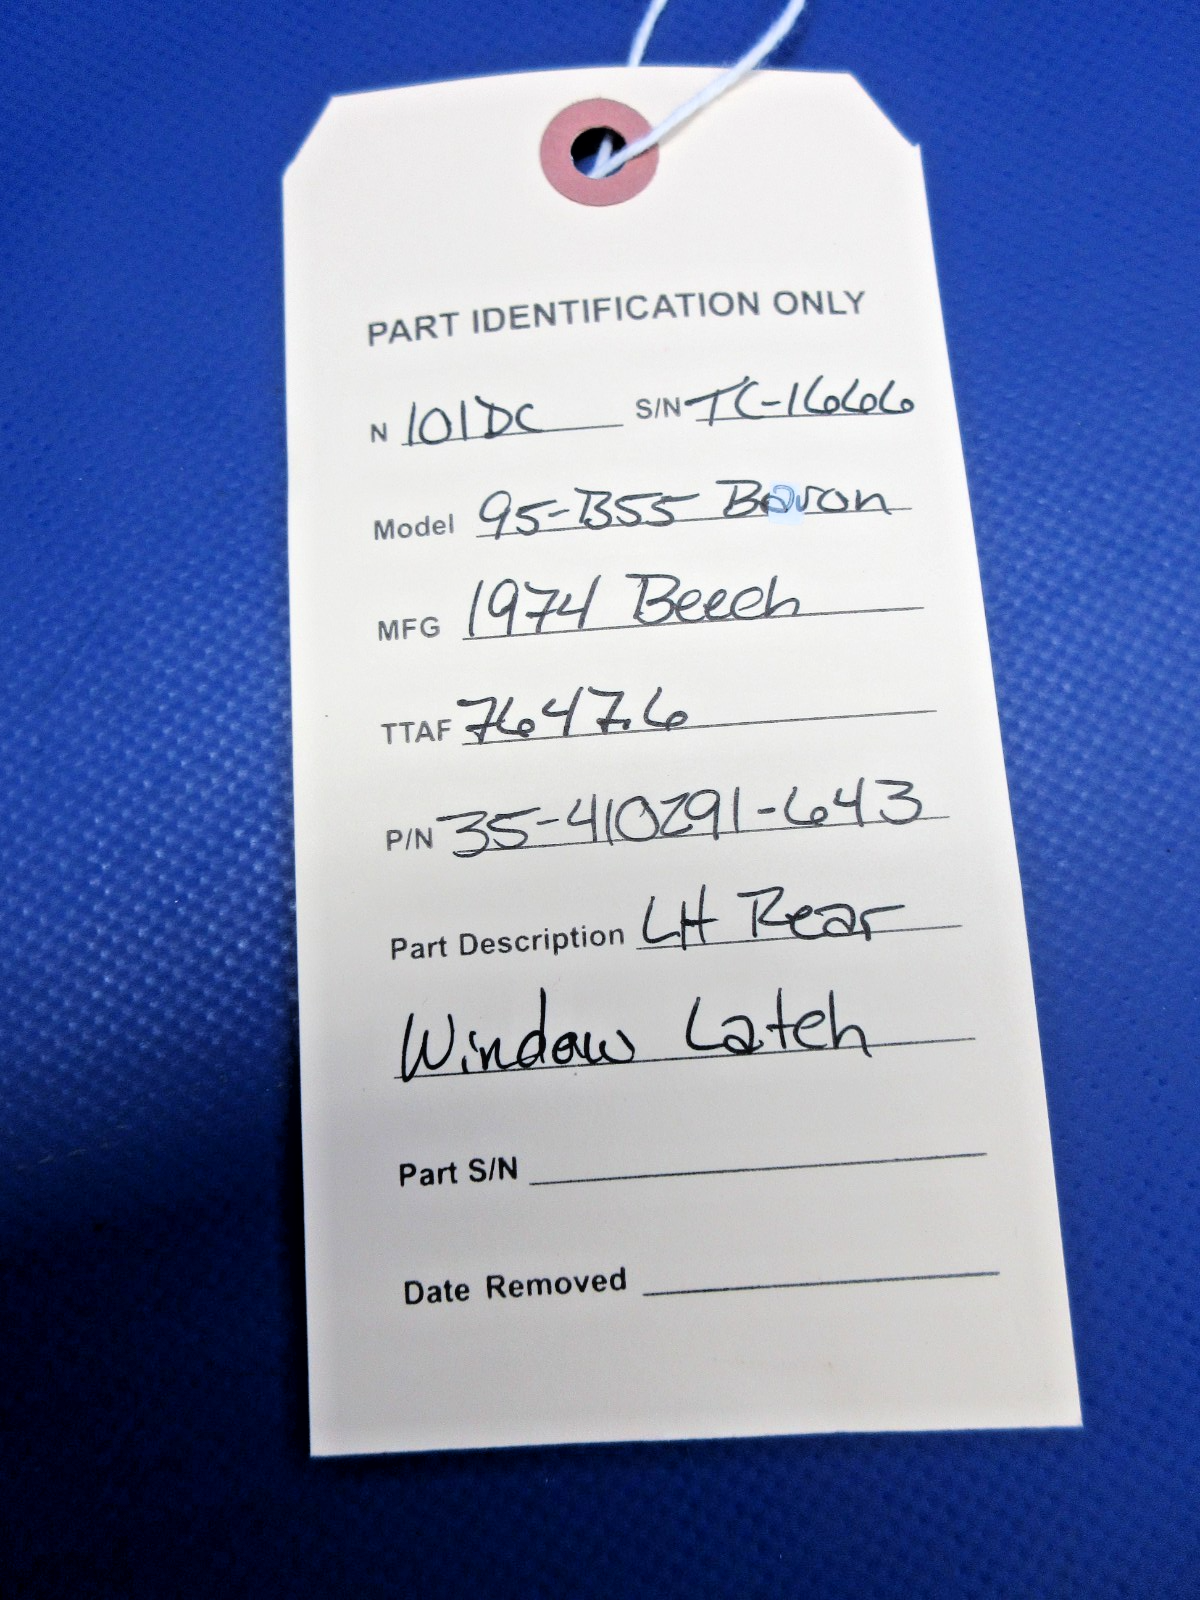 PART IDENTIFICATION ONLY
N 101DC S/N TC-1666
Model 95-B55 Baron
MFG 1974 Beech
TTAF 7647.6
P/N 35-410291-643
Part Description LH Rear
Window Latch
Part S/N
Date Removed